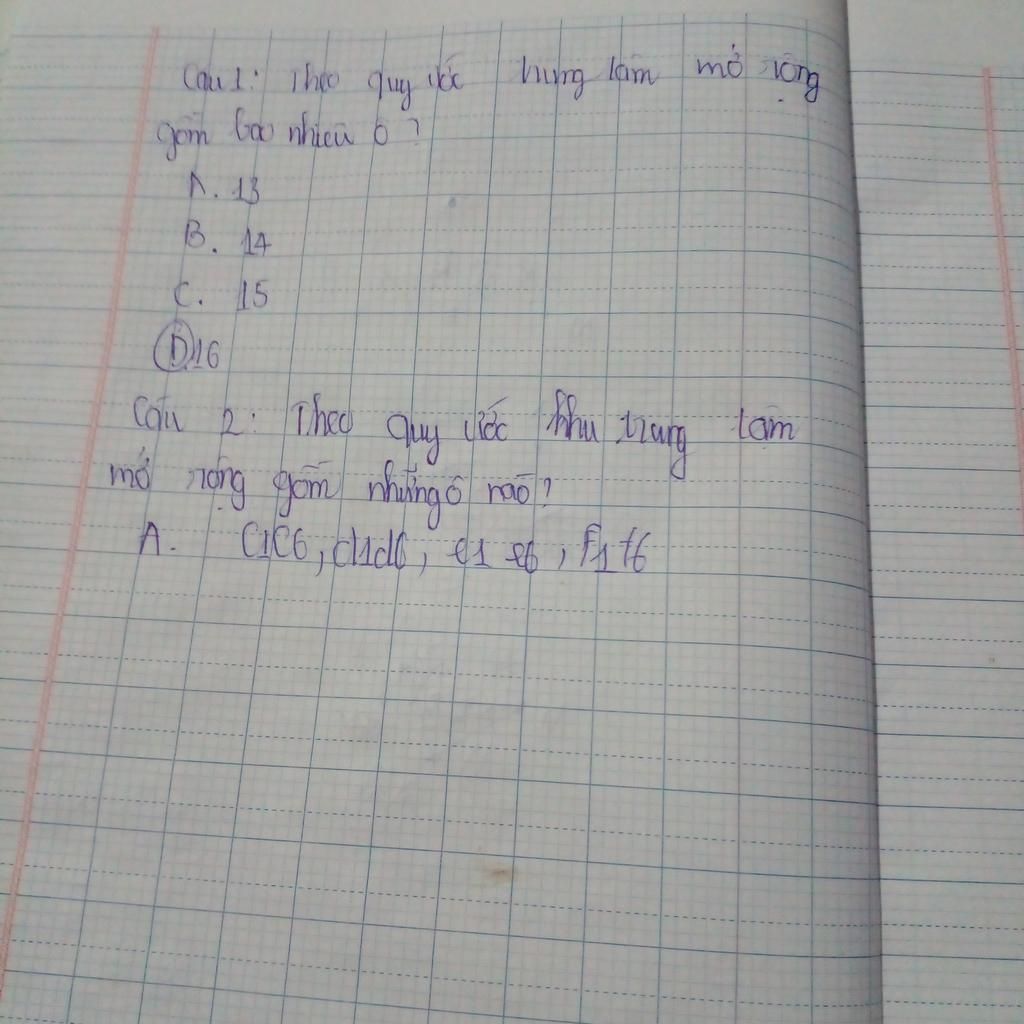 Câu 1: Theo quy ước trung tâm mở rộng
gồm bao nhiêu ô?
A. 13
B. 14
C. 15
D. 16
Câu 2: Theo quy ước khu trung tâm
mở rộng gồm những ô nào?
A. C1C6, d1d6, e1 e6, f1 f6